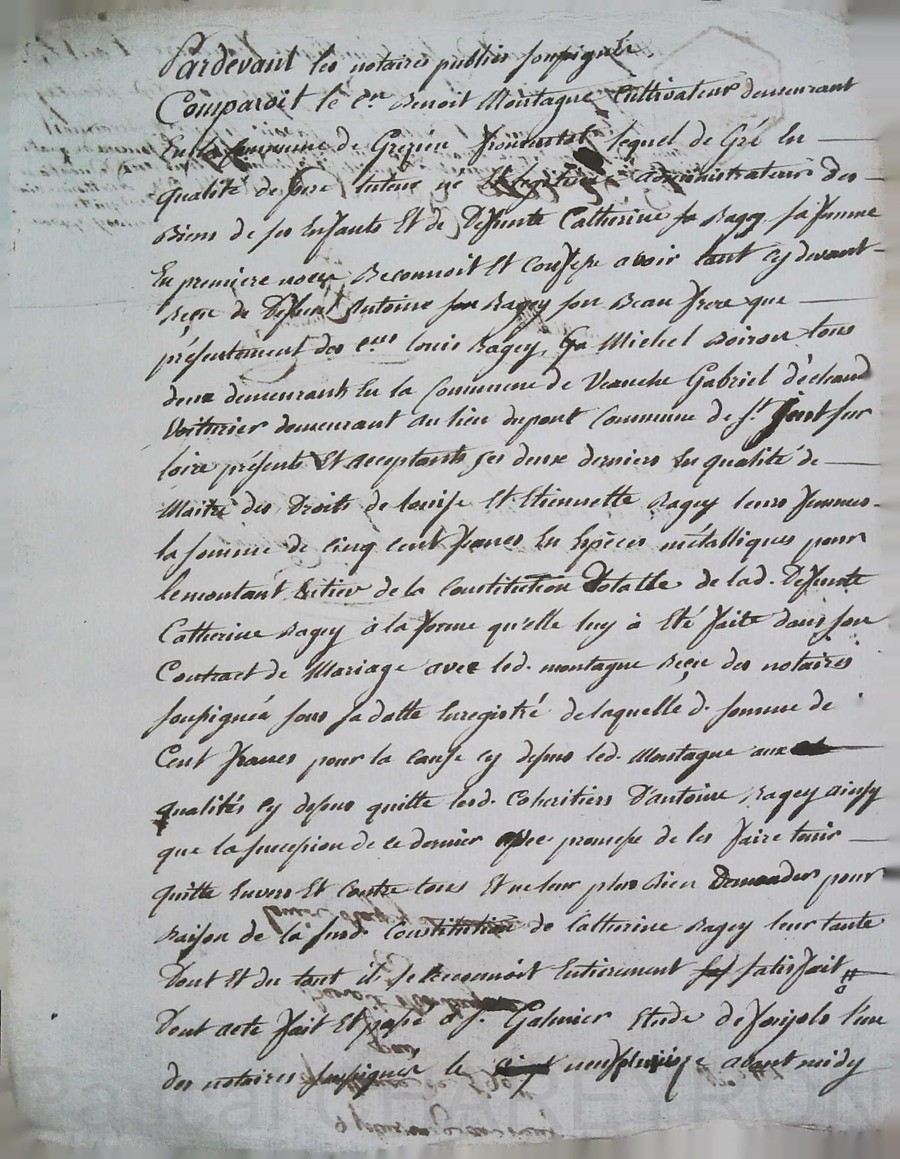 Pardevant les notaires publics soussignés
Comparoit le C.en Benoit Montagne Cultivateur demeurant
En la Commune de Grezieu fromental lequel de Gré En
qualité de pere tuteur né légitime administrateur des
Biens de ses Enfants Et de Deffunte Catherine Ragey sa femme
En premiere noces Reconnoit Et Confesse avoir tant cy devant
Reçu de Deffunt Antoine Ragey son Beau frere que
présentement des C.ens louis Ragey, Michel Boiron tous
deux demeurants En la Commune de Veauche Gabriel déchaud
Voiturier demeurant au lieu dupont Commune de S.t Just sur
loire présents Et acceptants ses deux derniers En qualité de
Maitre des Droits de louise Et Etiennette Ragey leurs femmes
la somme de cinq cent francs En Espèces métalliques pour
le montant Entier de la Constitution Dotalle de lad. Deffunte
Catherine Ragey à la forme qu'elle luy à Eté faite dans son
Contract de Mariage avec led. montagne Reçu des notaires
soussignés sous sa datte Enregistré de laquelle d. somme de
Cent francs pour la cause cy dessus led. Montagne aux
qualités cy dessus quitte lesd. Cohéritiers D'antoine Ragey ainsy
que la succession de ce dernier avec promesse de les faire tenir
quitte Envers Et Contre tous Et ne leur plus Rien Demander pour
Raison de la susd. Constitution de Catherine Ragey leur tante
Dont Et du tout il se Reconnoit Entierement satisfait
Dont acte fait Et passé à S.t Galmier Etude de l'un
des notaires soussignés le avant midy
Pascal CHAREYRON